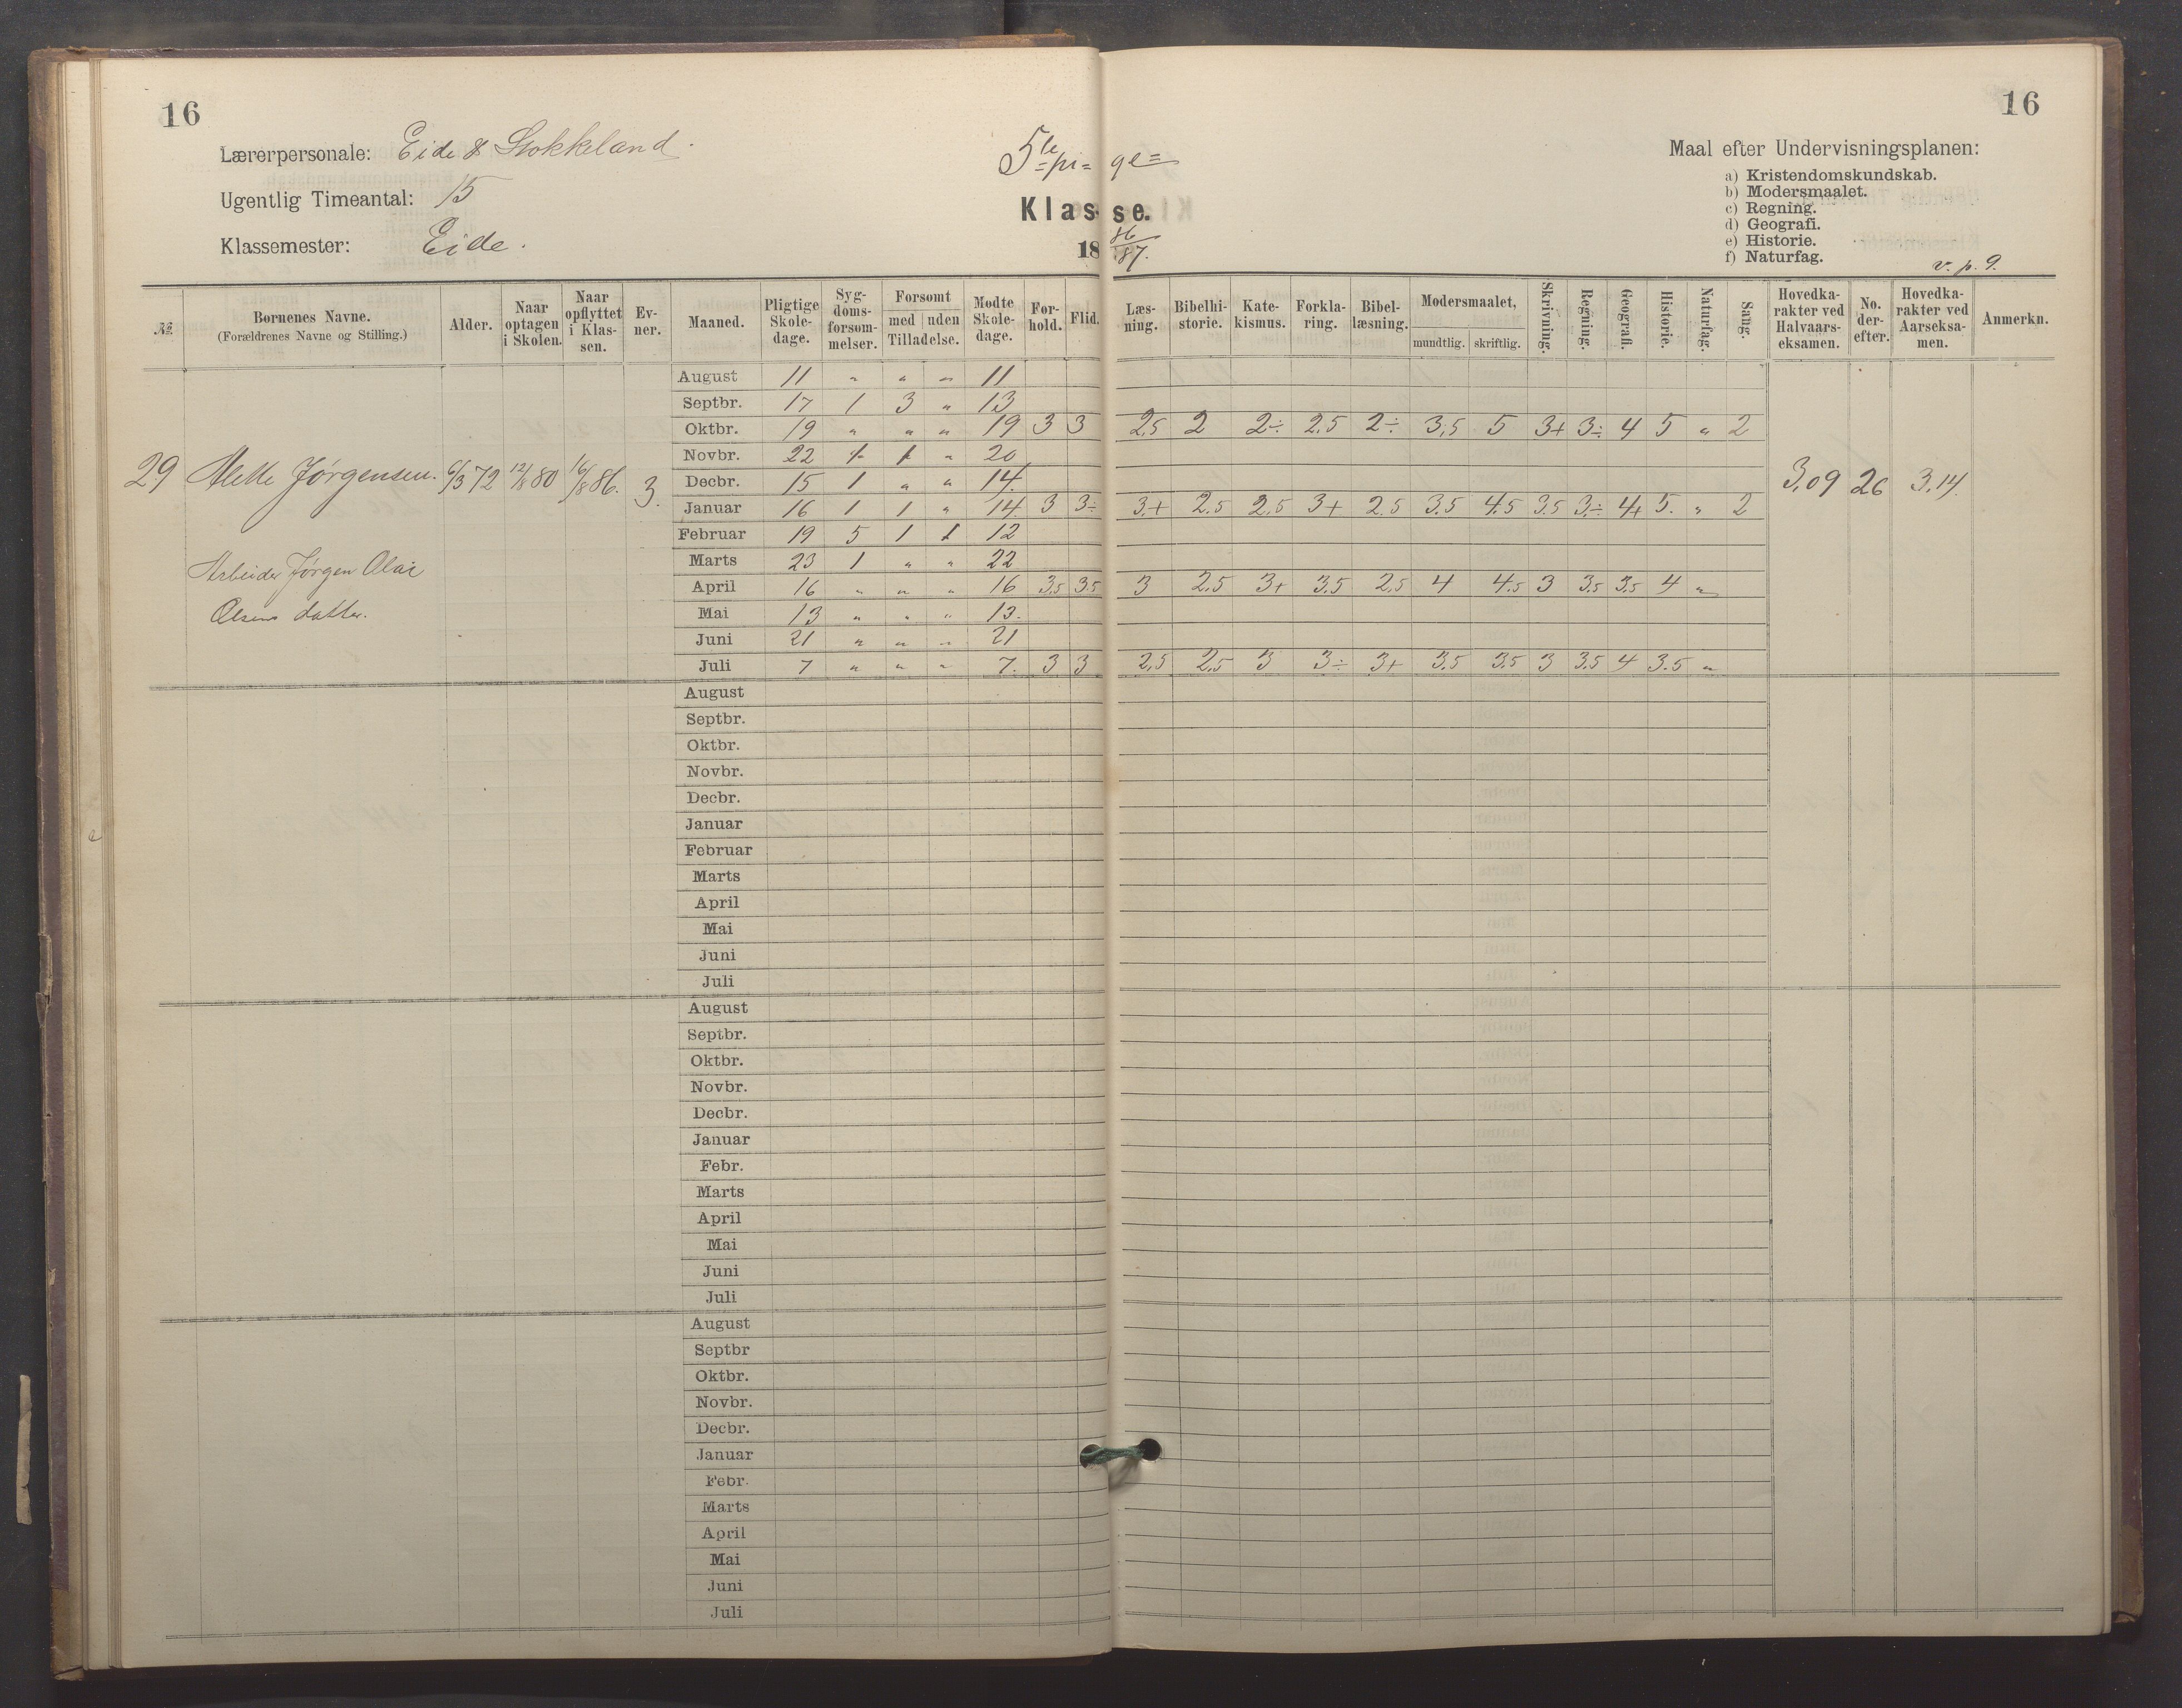 16
16
Lærerpersonale: Eide & Stokkeland.
Ugentlig Timeantal: 15
Klassemester: Eide.
5te pige=
Klasse.
18 86/87.
Maal efter Undervisningsplanen:
a) Kristendomskundskab.
b) Modersmaalet.
c) Regning.
d) Geografi.
e) Historie.
f) Naturfag.
v. p. 9.
№ | Børnenes Navne. (Forældrenes Navne og Stilling.) | Alder. | Naar optagen i Skolen. | Naar opflyttet i Klas-sen. | Ev-ner. | Maaned. | Pligtige Skole-dage. | Syg-doms-forsøm-melser. | Forsømt med uden Tilladelse. | Mødte Skole-dage. | For-hold. | Flid. | Læs-ning. | Bibelhi-storie. | Kate-kismus. | Forkla-ring. | Bibel-læsning. | Modersmaalet, mundtlig. skriftlig. | Skrivning. | Regning. | Geografi. | Historie. | Naturfag. | Sang. | Hovedka-rakter ved Halvaars-eksamen. | No. der-efter. | Hovedka-rakter ved Aarseksa-men. | Anmerkn.
29 Mette Jørgensen. 6/3 72 12/8 80 16/8 86. 3.
Arbeider Jørgen Olai
Olsens datter.
August 11 " " " 11
Septbr. 17 1 3 " 13
Oktbr. 19 " " " 19 3 3 2,5 2 2÷ 2,5 2÷ 3,5 5 3+ 3÷ 4 5 " 2
Novbr. 22 1 1 " 20
Decbr. 15 1 " " 14.
Januar 16 1 1 " 14. 3 3÷ 3+ 2.5 2,5 3+ 2.5 3.5 4.5 3.5 3÷ 4+ 5. " 2
Februar 19 5 1 1 12
Marts 23 1 " " 22
April 16 " " " 16 3,5 3.5 3 2,5 3+ 3,5 2,5 4 4.5 3 3,5 3,5 4 "
Mai 13 " " " 13.
Juni 21 " " " 21
Juli 7 " " " 7. 3 3 2,5 2,5 3 3÷ 3+ 3,5 3.5 3 3.5 4 3.5 "
3,09 26 3,14.
August
Septbr.
Oktbr.
Novbr.
Decbr.
Januar
Februar
Marts
April
Mai
Juni
Juli
August
Septbr.
Oktbr.
Novbr.
Decbr.
Januar
Febr.
Marts
April
Mai
Juni
Juli
August
Septbr
Oktbr.
Novbr.
Decbr.
Januar
Febr.
Marts
April
Mai
Juni
Juli